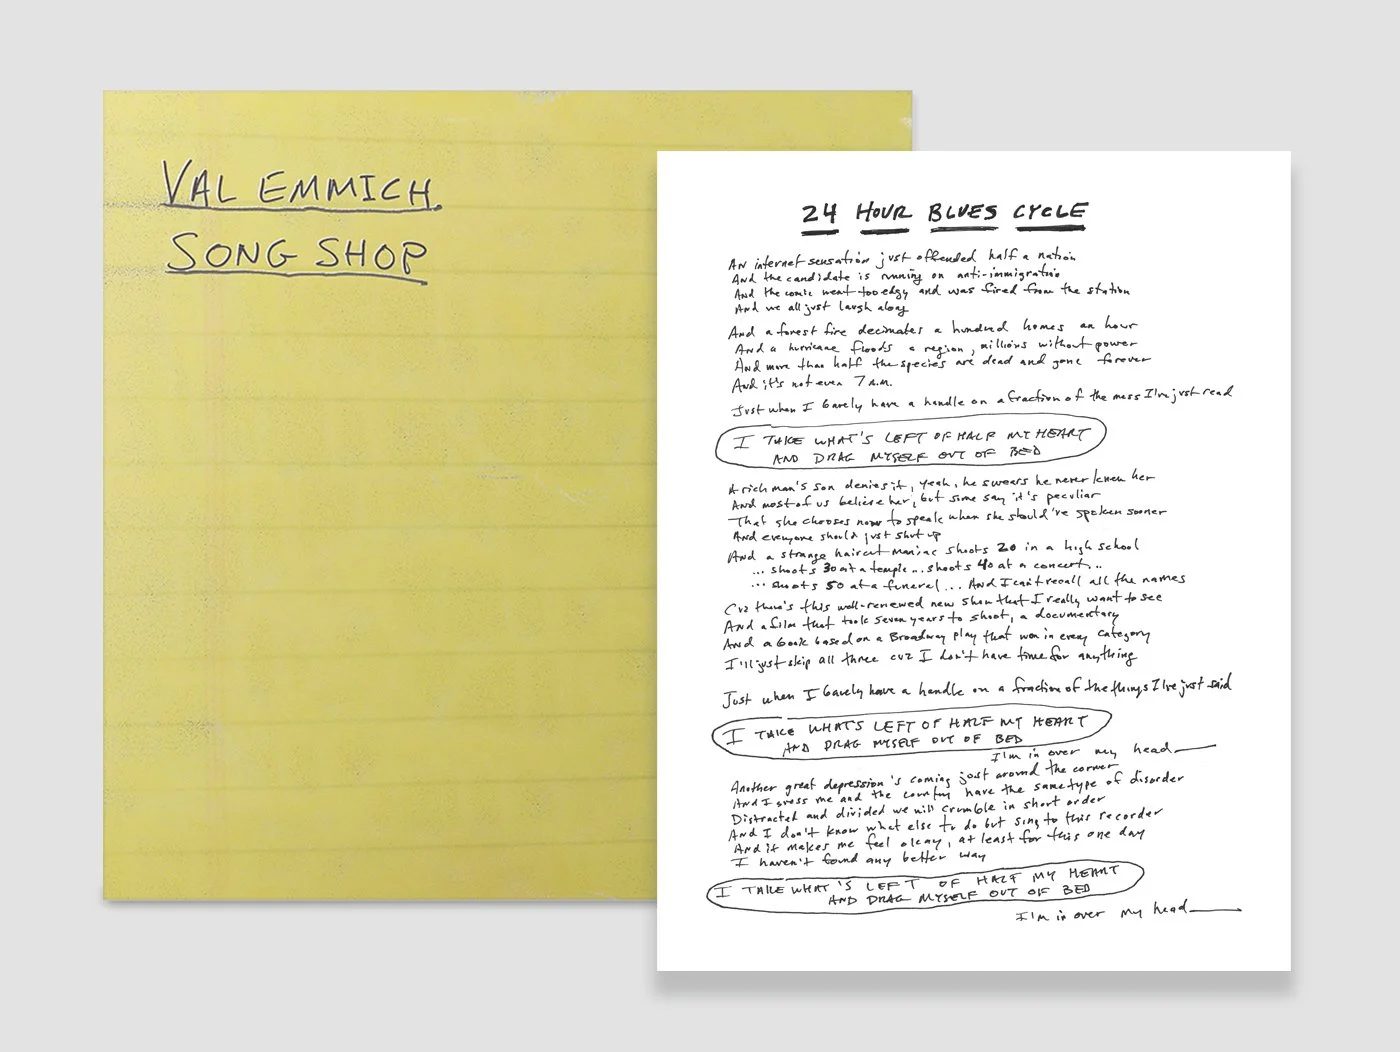 VAL EMMICH
SONG SHOP
24 HOUR BLUES CYCLE
An internet sensation just offended half a nation
And the candidate is running on anti-immigration
And the comic went too edgy and was fired from the station
And we all just laugh along
And a forest fire decimates a hundred homes an hour
And a hurricane floods a region, millions without power
And more than half the species are dead and gone forever
And it's not even 7 a.m.
Just when I barely have a handle on a fraction of the mess I've just read
I TAKE WHAT'S LEFT OF HALF MY HEART
AND DRAG MYSELF OUT OF BED
A rich man's son denies it, yeah, he swears he never knew her
And most of us believe her, but some say it's peculiar
That she chooses now to speak when she should've spoken sooner
And everyone should just shut up
And a strange haircut maniac shoots 20 in a high school
... shoots 30 at a temple... shoots 40 at a concert...
... shoots 50 at a funeral... And I can't recall all the names
Cuz there's this well-renewed new show that I really want to see
And a film that took seven years to shoot, a documentary
And a book based on a Broadway play that won in every category
I'll just skip all three cuz I don't have time for anything
Just when I barely have a handle on a fraction of the things I've just said
I TAKE WHAT'S LEFT OF HALF MY HEART
AND DRAG MYSELF OUT OF BED
I'm in over my head
Another great depression's coming just around the corner
And I guess me and the country have the same type of disorder
Distracted and divided we will crumble in short order
And I don't know what else to do but sing to this recorder
And it makes me feel okay, at least for this one day
I haven't found any better way
I TAKE WHAT'S LEFT OF HALF MY HEART
AND DRAG MYSELF OUT OF BED
I'm in over my head